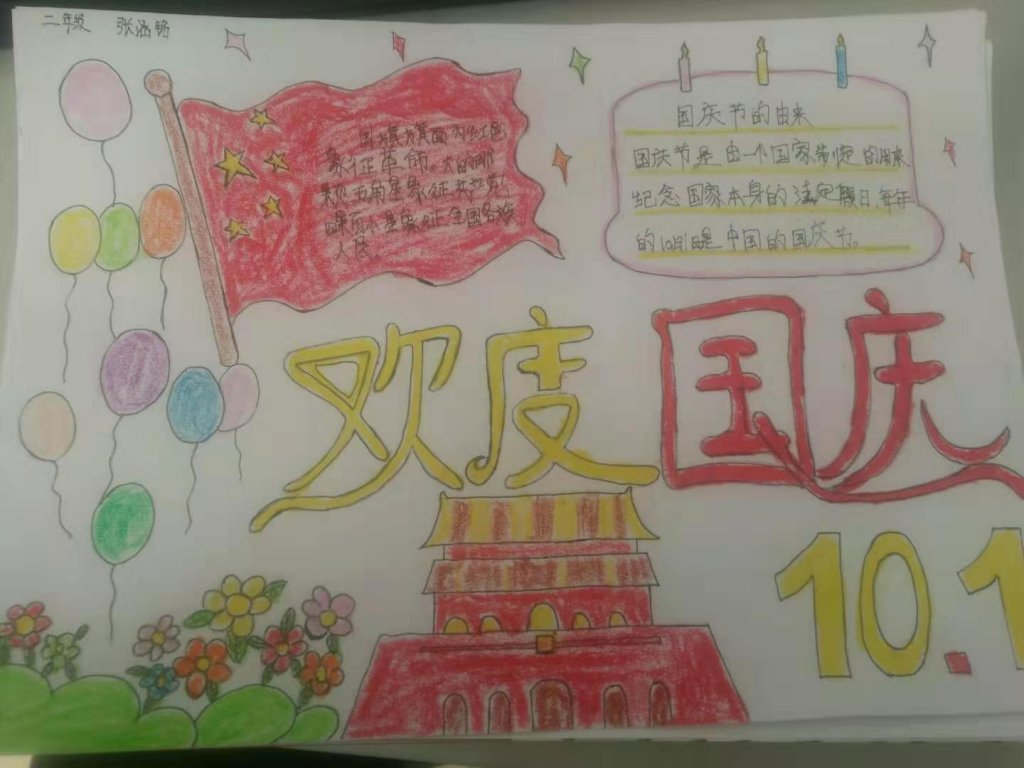 二年级 张涵
国旗旗面为红色
象征革命。大的那
颗五角星象征共产党,
四颗小星象征全国各族
人民。
国庆节的由来
国庆节是由一个国家制定的用来
纪念国家本身的法定假日,每年
的10月1日是中国的国庆节。
欢度国庆
10.1